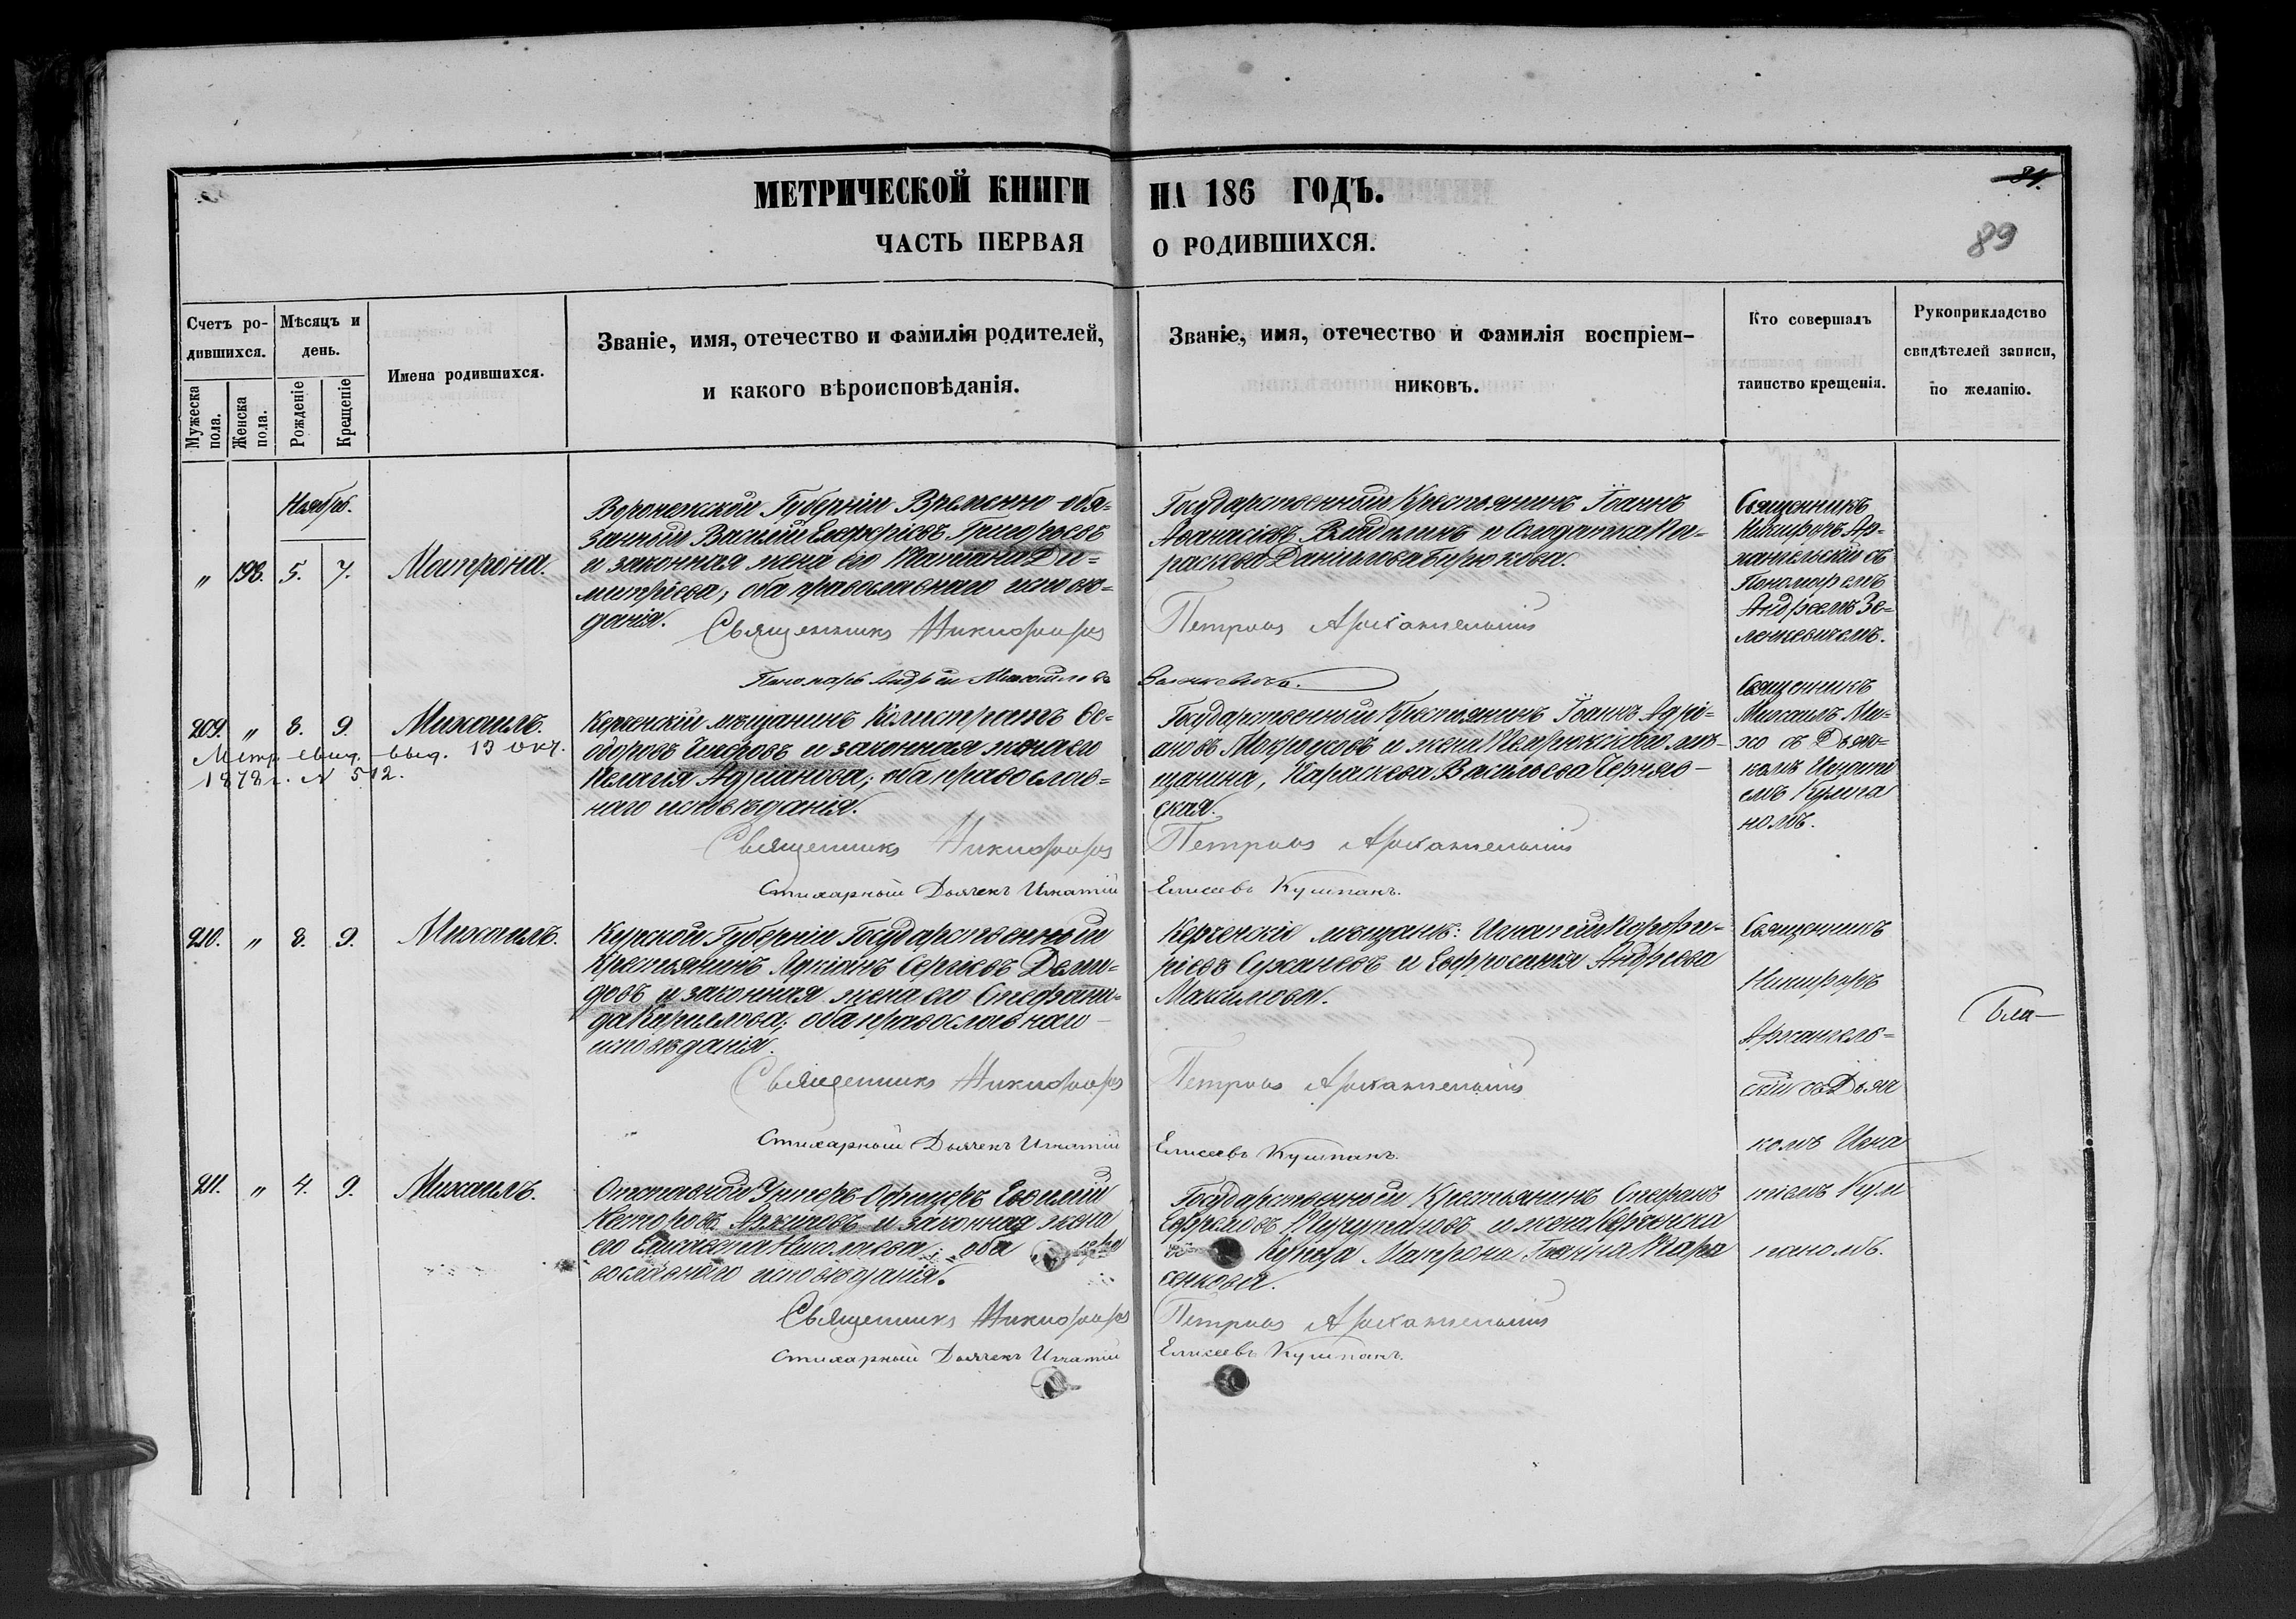 МЕТРИЧЕСКОЙ КНИГИ НА 186 ГОДЪ.
84.
89
ЧАСТЬ ПЕРВАЯ О РОДИВШИХСЯ.
Счетъ ро-
дившихся.
Мужеска пола.
Женска пола.
Мѣсяцъ и
день.
Рожденіе
Крещеніе
Имена родившихся.
Званіе, имя, отечество и фамилія родителей,
и какого вѣроисповѣданія.
Званіе, имя, отечество и фамилія воспріем-
никовъ.
Кто совершалъ
таинство крещенія.
Рукоприкладство
свидѣтелей записи,
по желанію.
Ноябрь.
" 198. 5. 7. Матрона.
Воронежской Губерніи Временно-обя-
занный Василій Григорьевъ
и законная жена его Татіана Ди-
митріева; оба православнаго исповѣ-
данія.
Священникъ Никифоръ
Пономарь Андрей Михайловъ
Государственный Крестьянинъ Іоаннъ
Аѳанасіевъ и Солдатка Па-
раскева Даніилова Бирюкова.
Петровъ Архангельскій
Зеленкевичъ.
Священникъ
Никифоръ Ар-
хангельскій съ
Пономаремъ
Андреемъ Зе-
ленкевичемъ.
209. " 8. 9. Михаилъ.
Метр. свид. выд. 13 окт.
1878 г. N 512.
Керченскій мѣщанинъ Калистратъ Ѳе-
одоровъ и законная жена его
Пелагія Адріанова; оба православ-
наго исповѣданія.
Священникъ Никифоръ
Стихарный Дьячекъ Игнатій
Государственный Крестьянинъ Іоаннъ Адрі-
ановъ и жена мѣ-
щанина, Параскева Васильева Черняв-
ская.
Петровъ Архангельскій
Елисеевъ Кушпанъ.
Священникъ
Михаилъ Ми-
хо съ Дьяч-
комъ Игнаті
емъ Кушпа
номъ.
210. " 8. 9. Михаилъ.
Курской Губерніи Государственный
Крестьянинъ Лукіанъ Сергіевъ Деми-
довъ и законная жена его Стефани-
да Кириллова; оба православнаго
исповѣданія.
Священникъ Никифоръ
Стихарный Дьячекъ Игнатій
Керченскіе мѣщане: Игнатій Порфи-
ріевъ Сухаревъ и Евфросинія Андреева
Максимова.
Петровъ Архангельскій
Елисеевъ Кушпанъ.
Священникъ
Никифоръ
Архангель-
скій съ Дьяч
комъ Игна
тіемъ Куш
паномъ.
Бла-
211. " 4. 9. Михаилъ.
Отставной Унтеръ-Офицеръ Евѳимій
Несторовъ и законная жена
его Елисавета Николаева; оба пра
вославнаго исповѣданія.
Священникъ Никифоръ
Стихарный Дьячекъ Игнатій
Государственный Крестьянинъ Стефанъ
Ефремовъ и жена Керченска
го Купца Матрона Іоаннова Тара
сенкова.
Петровъ Архангельскій
Елисеевъ Кушпанъ.